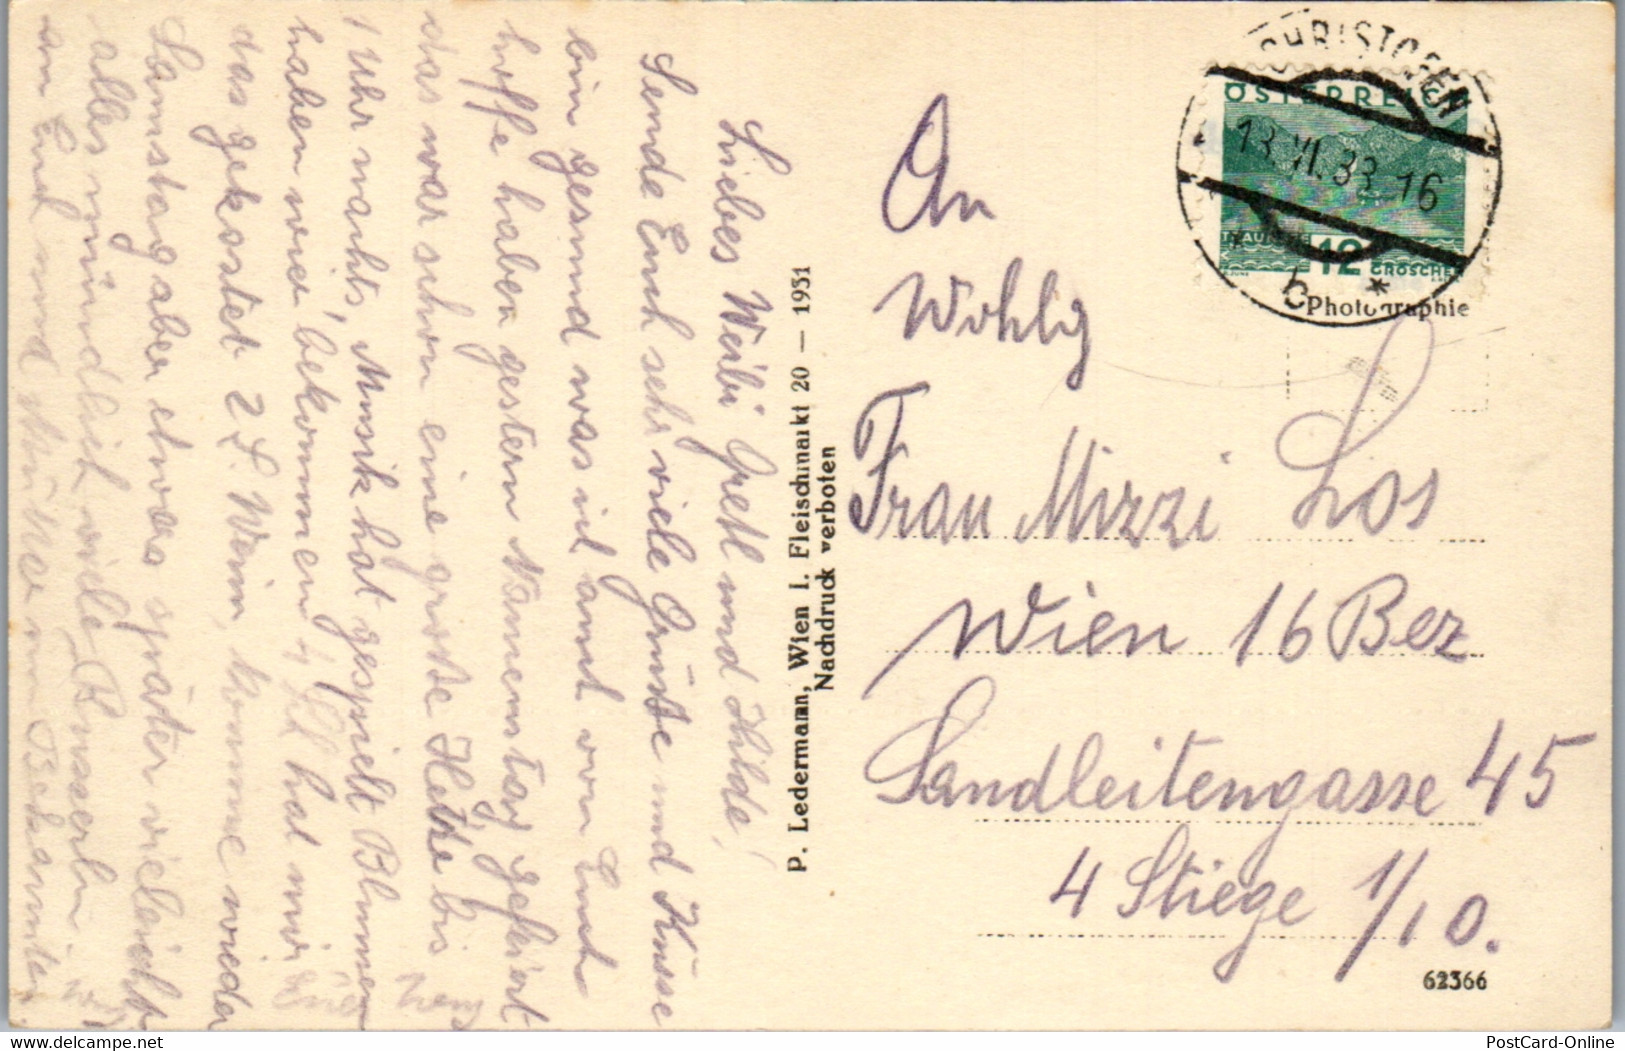 Liebes Weibi Gretl und Hilde!
Sende Euch sehr viele Grüsse und Küsse
bin gesund was ich auch von Euch
hoffe haben gestern Namenstag gefeiert
das war schon eine große Hetz bis
1 Uhr nachts, Musik hat gespielt Blumen
haben wir bekommen hat mir
das gekostet 2 L. Wein, komme wieder
Samstag aber etwas später vielleicht
alles mündlich viele Busserln
P. Ledermann, Wien I. Fleischmarkt 20 — 1931
Nachdruck verboten
CHRISTOFEN
13.VI.33 16
b
ÖSTERREICH
12
GROSCHEN
Photographie
An
Wohlg
Frau Mizzi Los
Wien 16 Bez
Sandleitengasse 45
4 Stiege 1/10.
62366
PostCard-Online
www.delcampe.net